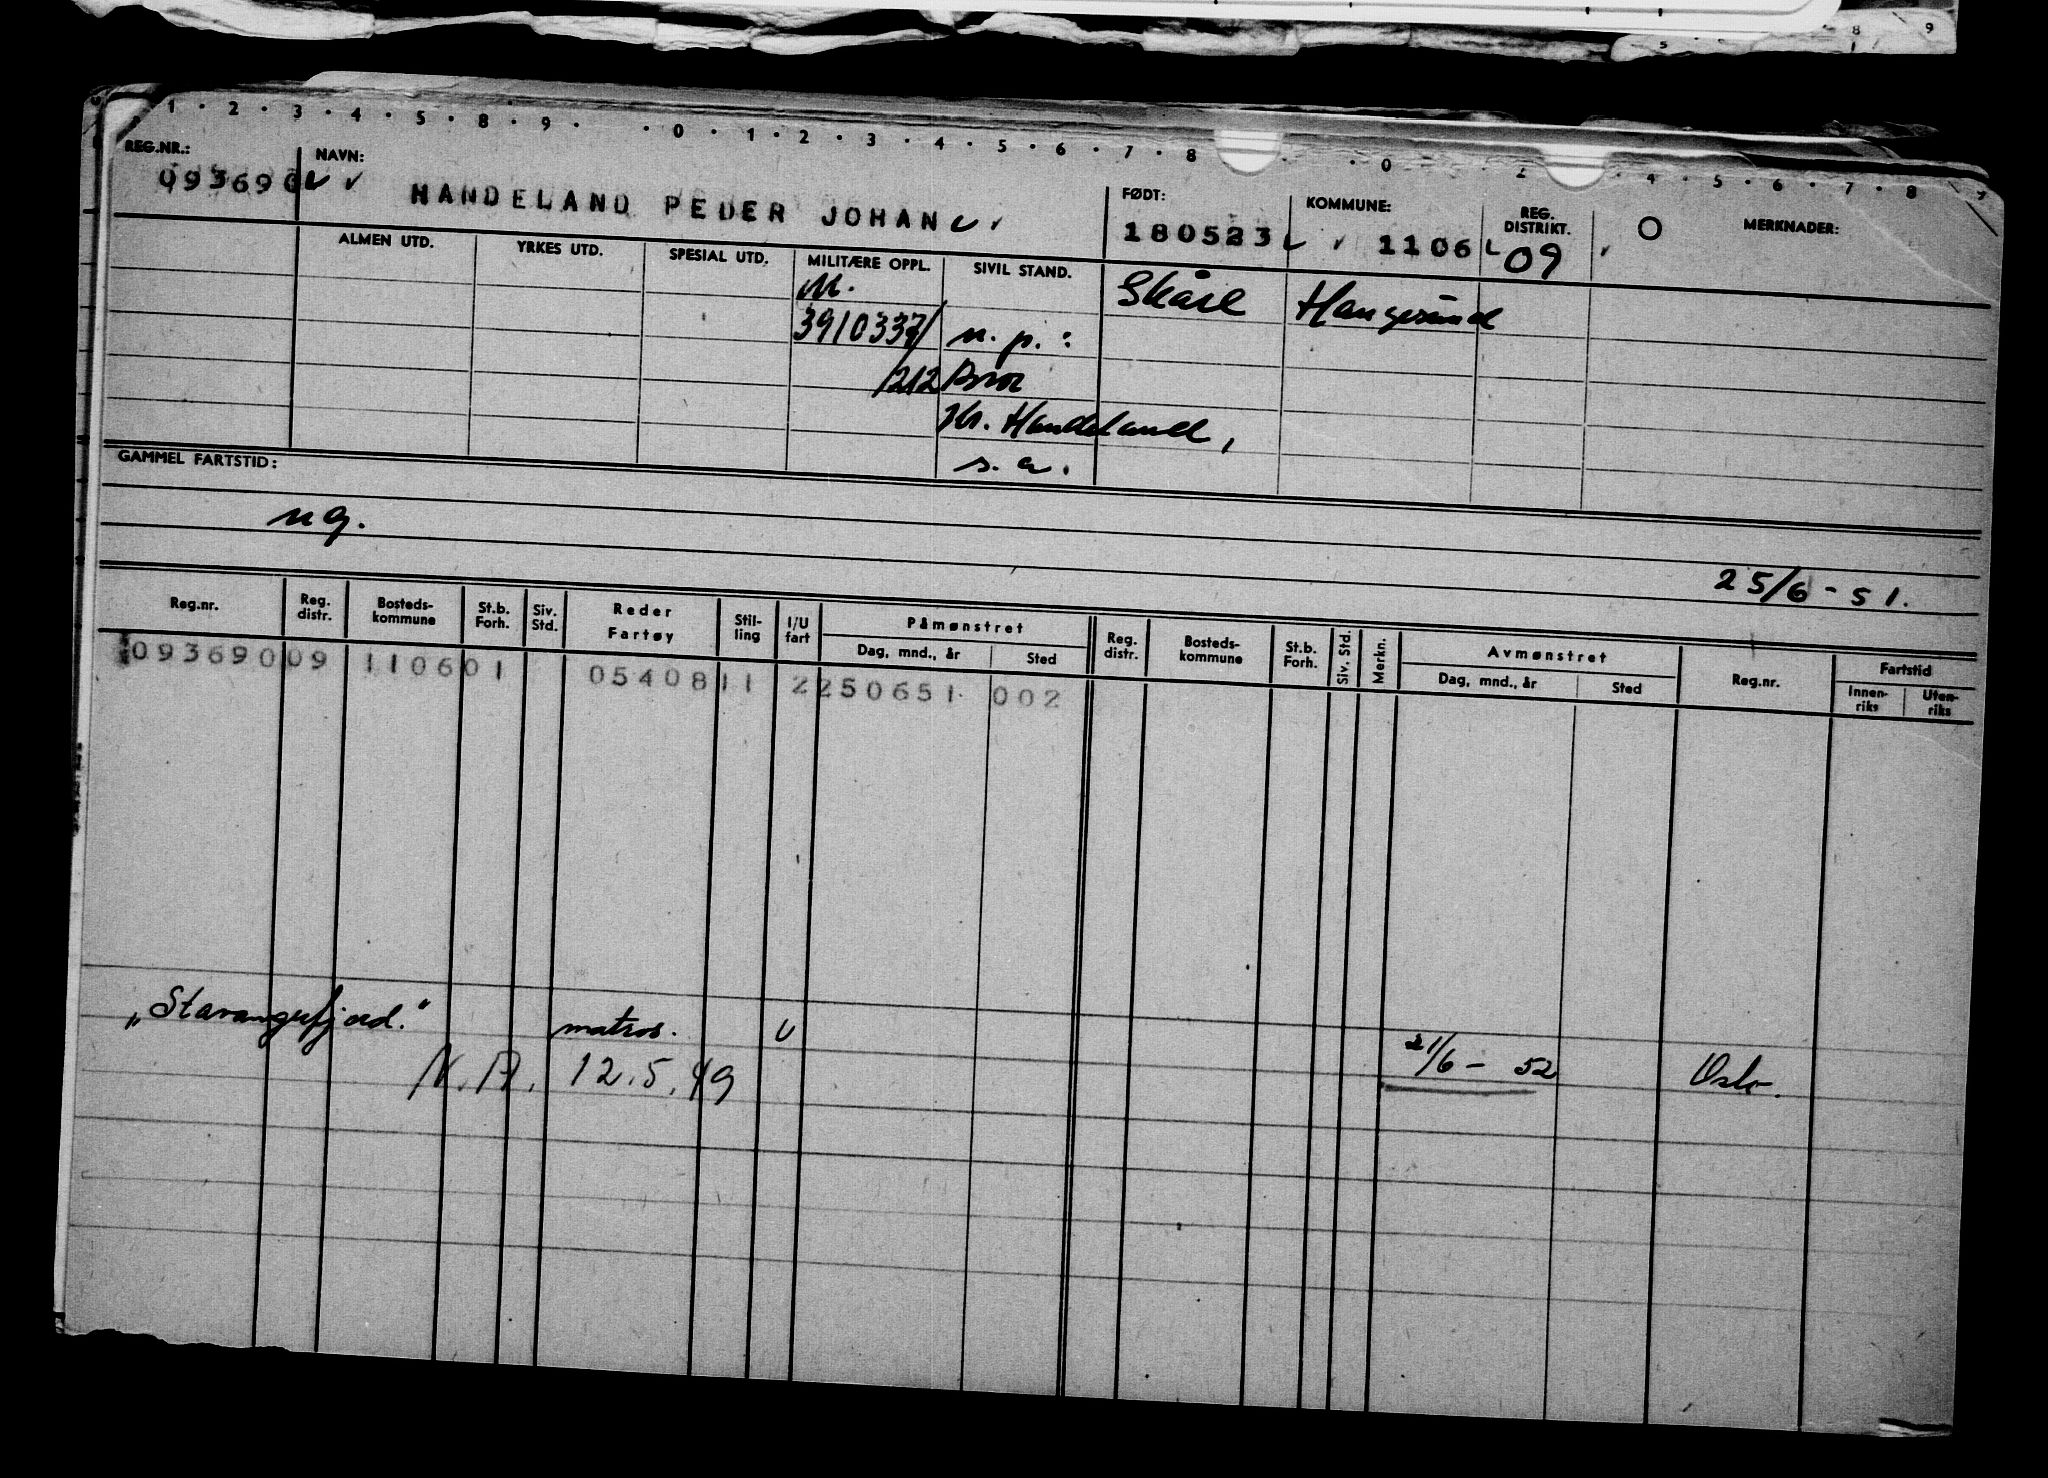 8 9
5
1 · 2 · 3 · 4 · 5 · 8 · 9 · · 0 · 1 · 2 · 3 · 4 · 5 · 6 · 7 · 8 · 0 · 2 · 4 · 5 · 6 · 7 · 8
REG.NR.: NAVN: FØDT: KOMMUNE: REG. DISTRIKT. MERKNADER:
093690 HANDELAND PEDER JOHAN 180523 1106 09
ALMEN UTD. YRKES UTD. SPESIAL UTD. MILITÆRE OPPL. SIVIL STAND.
M. Skåre Haugesund
3910337/ n. p. :
/212 Bror
Handeland,
GAMMEL FARTSTID: s. a.
ug.
25/6 - 51.
Reg.nr. Reg. distr. Bosteds-kommune St.b. Forh. Siv. Std. Reder Fartøy Stil-ling I/U fart Påmønstret Dag, mnd., år Sted Reg. distr. Bosteds-kommune St.b. Forh. Siv. Std. Merkn. Avmønstret Dag, mnd., år Sted Reg.nr. Fartstid Innen-riks Uten-riks
093690 09 1106 01 05408 11 2 250651 002
„Stavangerfjord." matros. U
N.A. 12.5.49 21/6 - 52 Oslo.